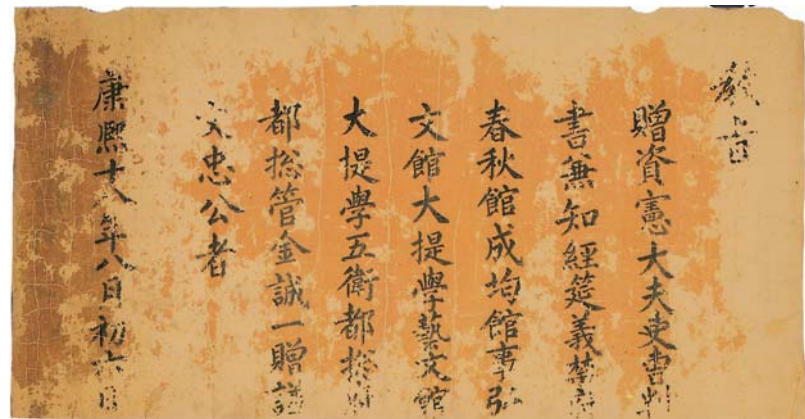 教旨
贈資憲大夫吏曹判
書兼知經筵義禁府
春秋館成均館事弘
文館大提學藝文館
大提學五衛都摠府
都摠管金誠一贈諡
文忠公者
康熙十八年八月初六日